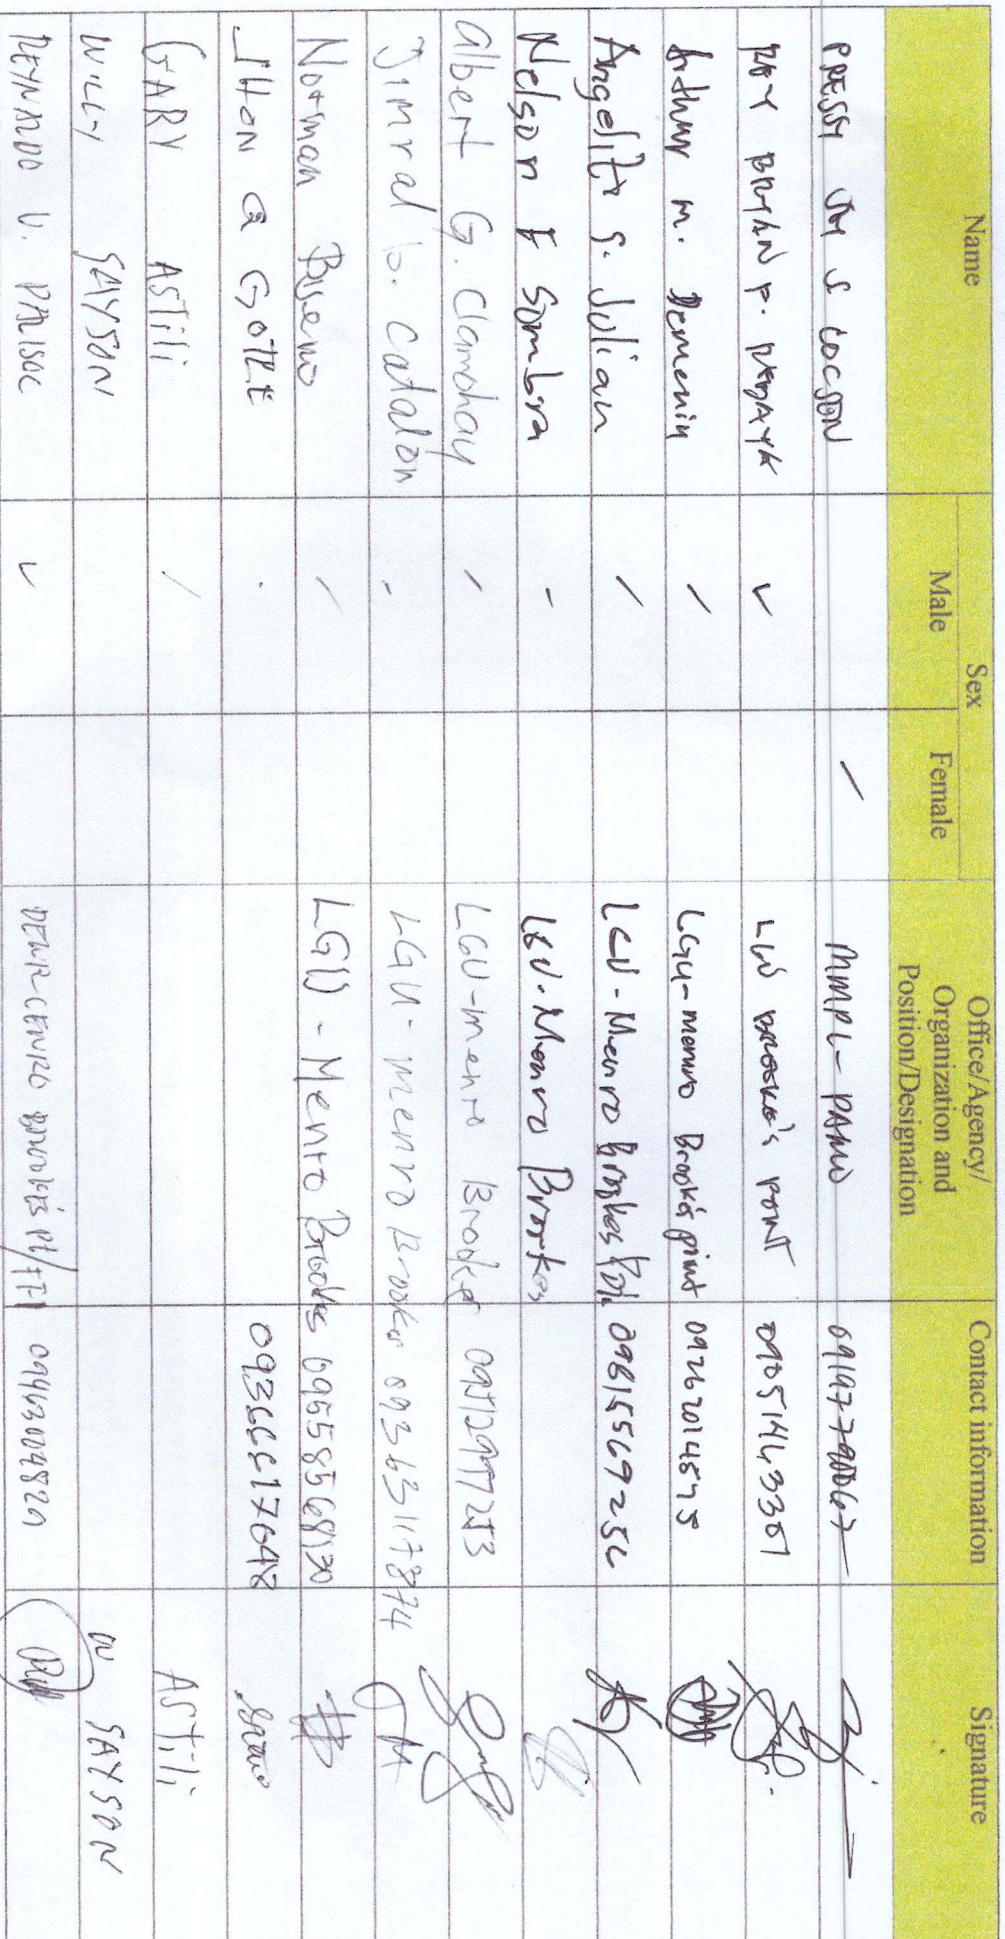 Name Sex Office/Agency/ Organization and Position/Designation Contact information Signature
Male Female
PRESSY JOY S LOCSON / MMPL-PAMO
RAY BRYAN P. ✓ LGU BROOKE'S POINT 09051463307
Arthur M. Demenin / LGU-menro Brooke's point 09262014575
Angelito S. Julian / LGU-Menro Brookes Pt. 09815569256
Nelson F Sombra - LGU-Menro Brookes
albert G. Clamohoy / LGU-menro Brookes
Jimral B. Catalon - LGU-menro Brookes 09363117874
Norman Buseno / LGU-Menro Brookes 09558568120
Jhon Q GOTLE 09366617648
GARY ASTILI / ASTILI
WILLY SAYSON W SAYSON
REYNALDO V. PALISOC ✓ DENR-CENRO BROOKE'S Pt/ 09463009820